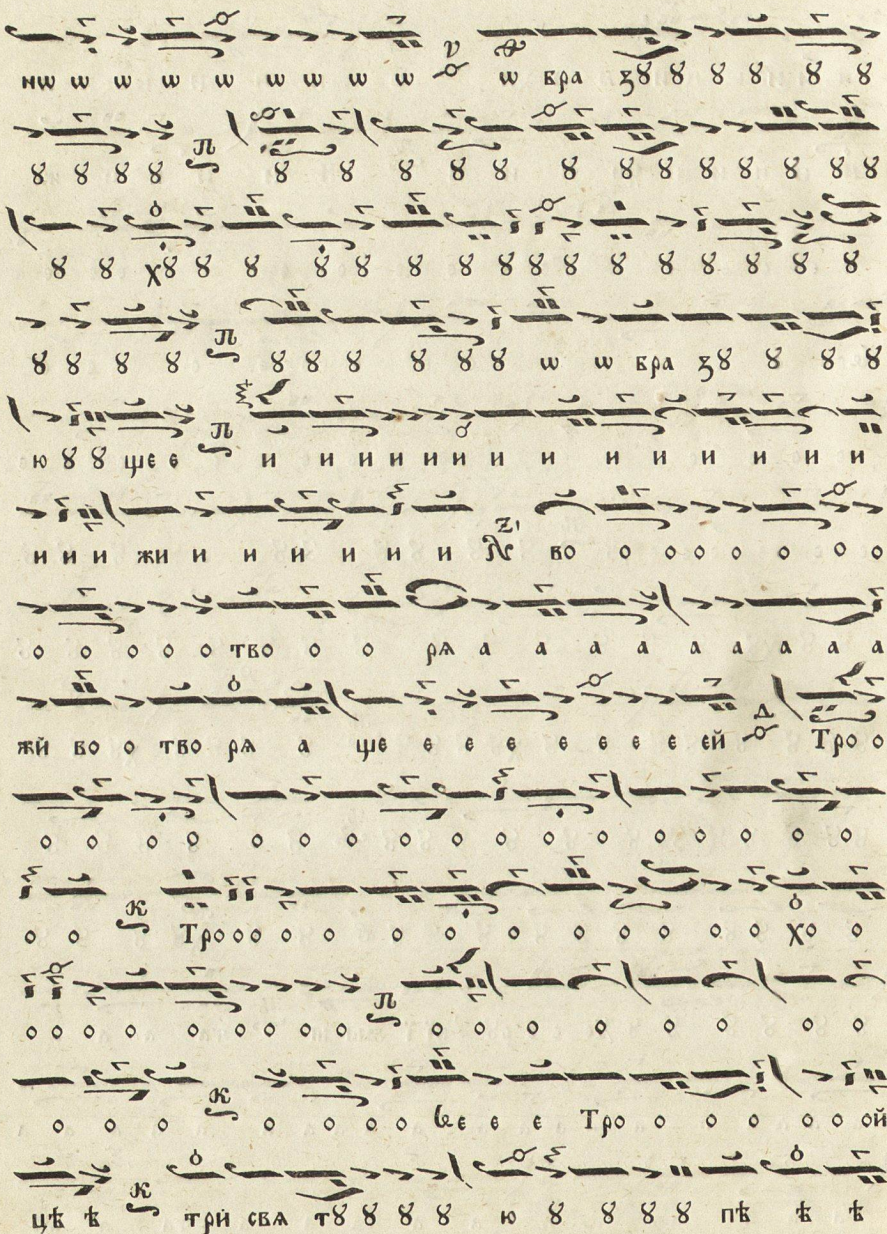 нѡ ѡ ѡ ѡ ѡ ѡ ѡ ѡ ѡ ѡ вра зꙋ ꙋ ꙋ ꙋ ꙋ ꙋ
ꙋ ꙋ ꙋ ꙋ ꙋ ꙋ ꙋ ꙋ ꙋ ꙋ ꙋ ꙋ ꙋ ꙋ ꙋ ꙋ
ꙋ ꙋ хꙋ ꙋ ꙋ ꙋ ꙋ ꙋ ꙋ ꙋ ꙋ ꙋ ꙋ ꙋ ꙋ ꙋ ꙋ
ꙋ ꙋ ꙋ ꙋ ꙋ ꙋ ꙋ ꙋ ꙋ ꙋ ѡ ѡ вра зꙋ ꙋ ꙋ ꙋ
ю ꙋ ꙋ ще е и и и и и и и и и и и и и
и и и жи и и и и и и во о о о о о о о
о о о о о тво о о рѧ а а а а а а а а а
жй во о тво рѧ а ще е е е е е е е е ей Тро о
о о о о о о о о о о о о о о о о о
о о Тро о о о о о о о о о о о о хо о
о о о о о о о о о о о о о о о о о
о о о о о о о ве е е е Тро о о о о о ой
цѣ ѣ трй свѧ тꙋ ꙋ ꙋ ꙋ ю ꙋ ꙋ ꙋ ꙋ пѣ ѣ ѣ